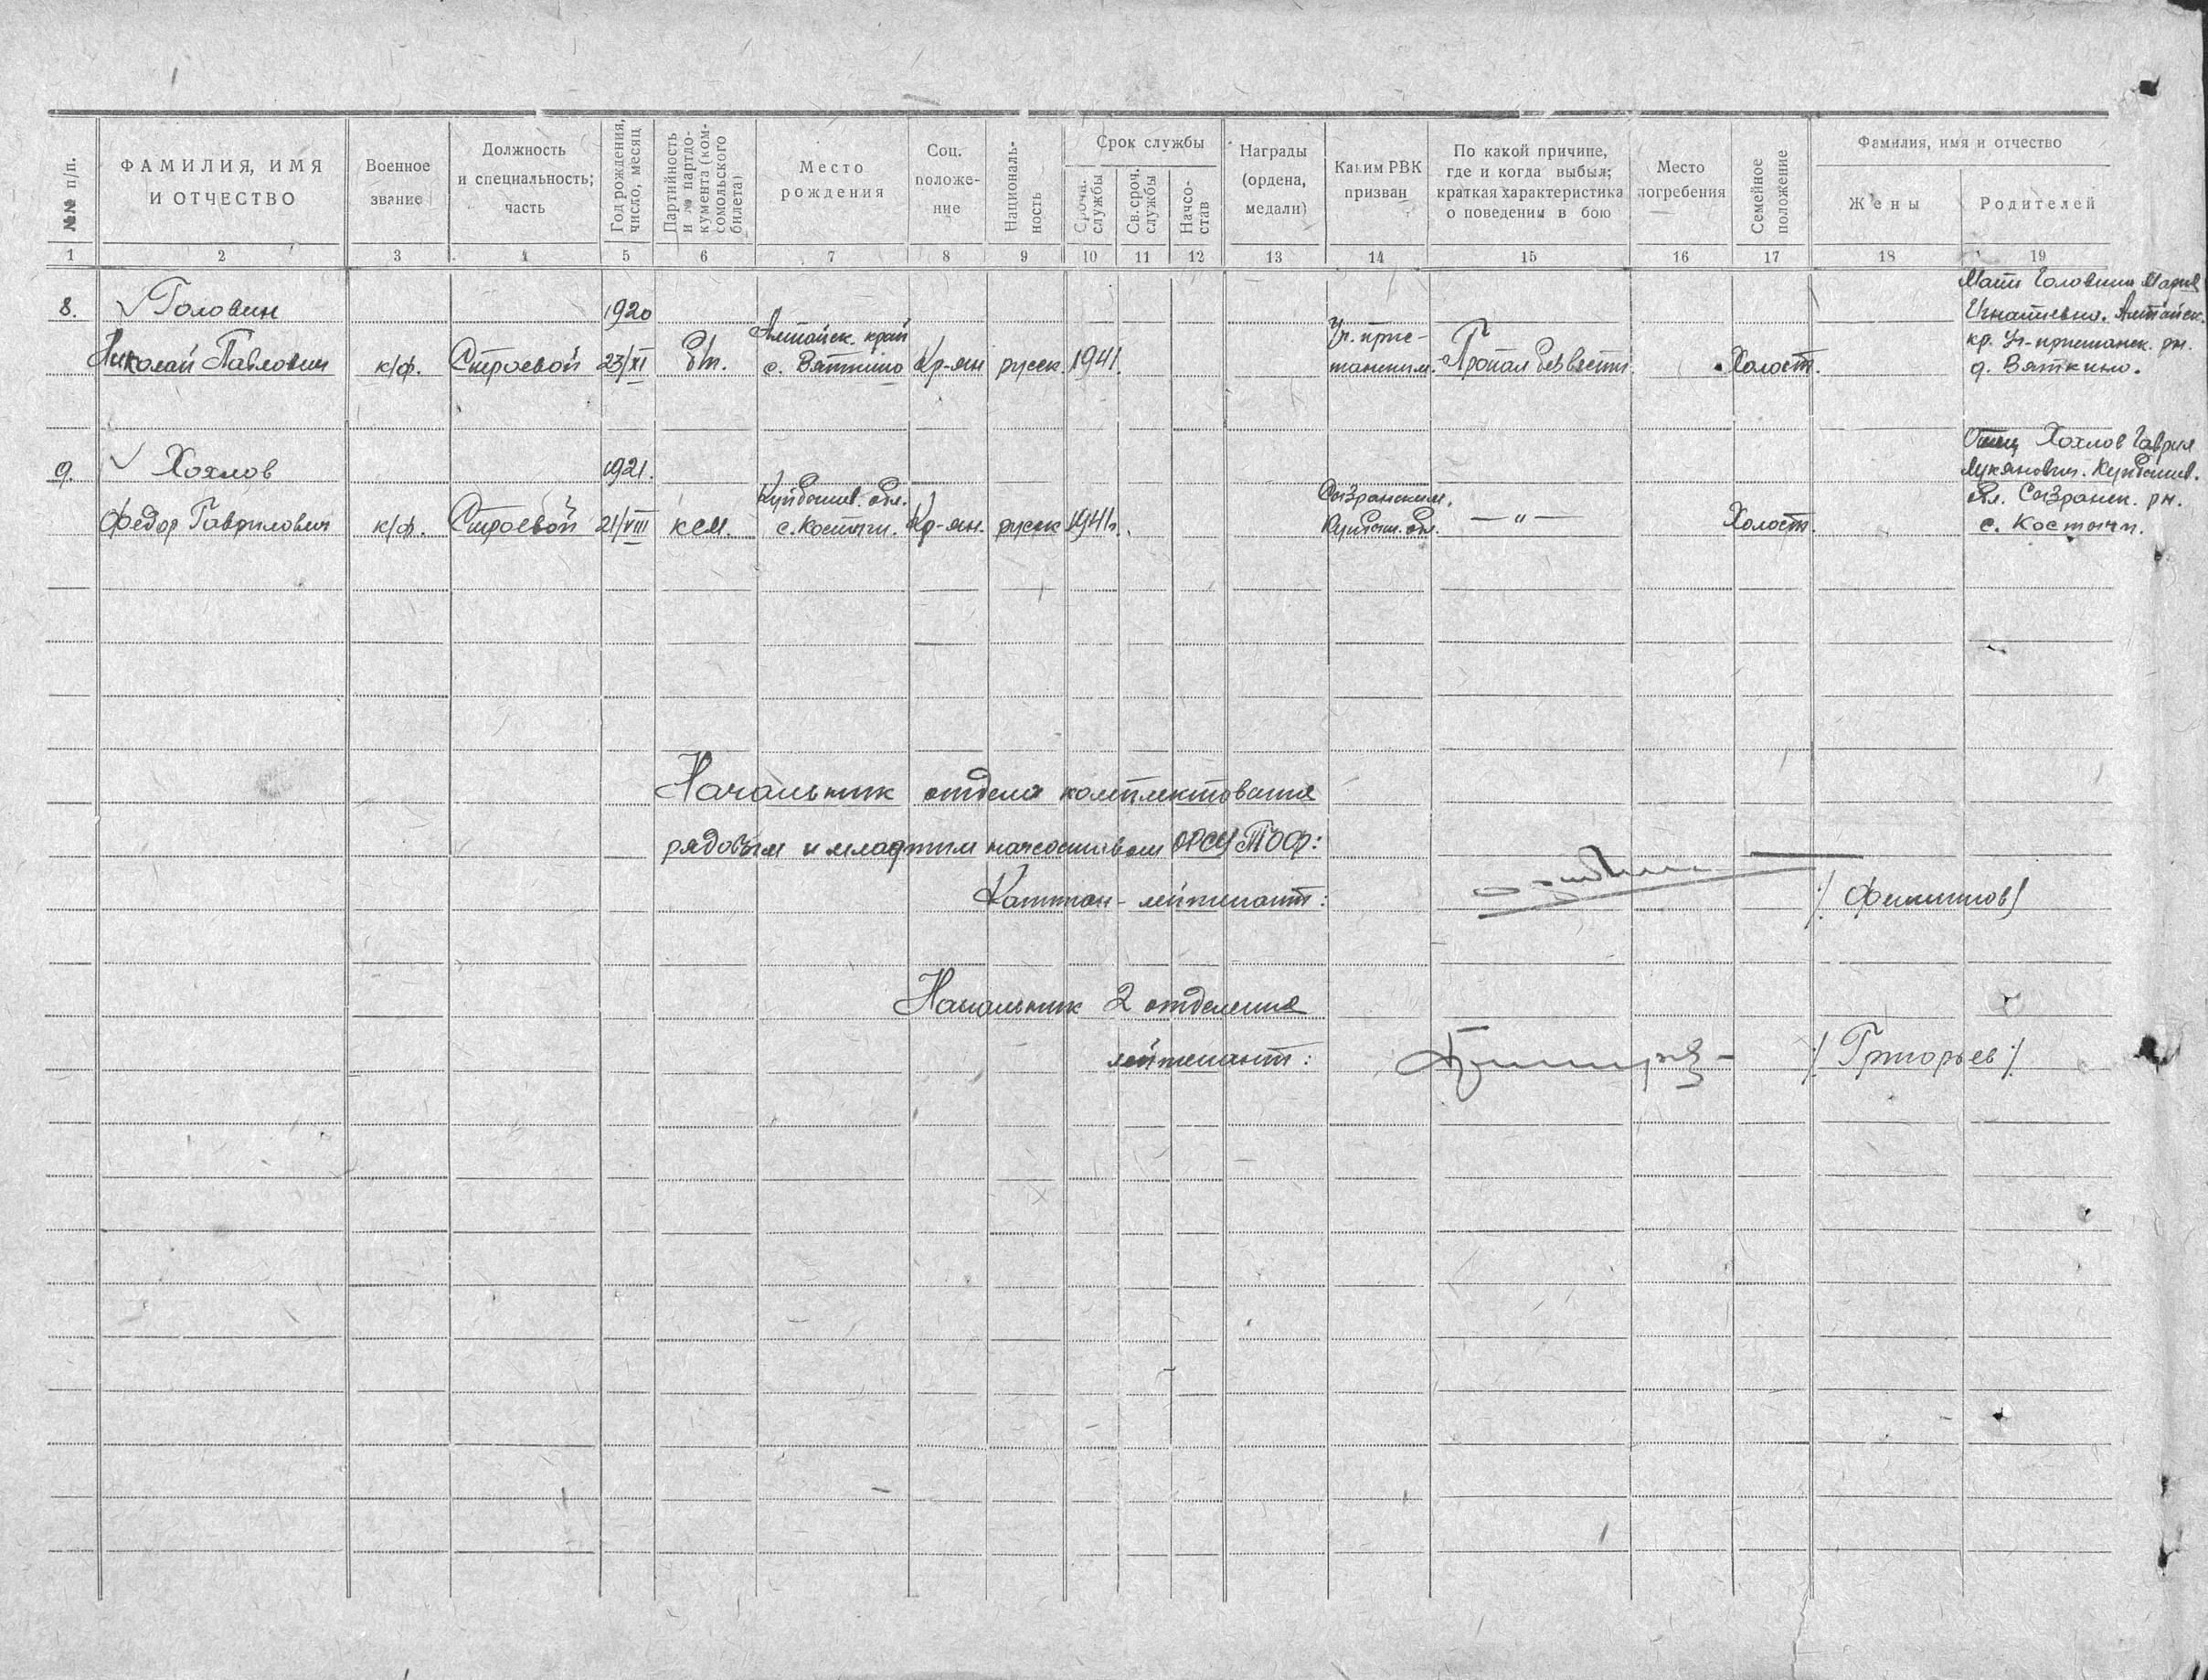 №№ п/п.
ФАМИЛИЯ, ИМЯ
И ОТЧЕСТВО
Военное
звание
Должность
и специальность;
часть
Год рождения,
число, месяц
Партийность
и № партдо-
кумента (ком-
сомольского
билета)
Место
рождения
Соц.
положе-
ние
Националь-
ность
Срок службы
Срочн.
службы
Св. сроч.
службы
Начсо-
став
Награды
(ордена,
медали)
Каким РВК
призван
По какой причине,
где и когда выбыл;
краткая характеристика
о поведении в бою
Место
погребения
Семейное
положение
Фамилия, имя и отчество
Жены
Родителей
1 2 3 4 5 6 7 8 9 10 11 12 13 14 15 16 17 18 19
8.
Головин
Николай Павлович
к/ф.
Строевой
1920
23/XI
б/п.
Алтайск. край
с. Вяткино
Кр-ян
русск
1941.
Уч. прис-
танским.
Пропал без вести.
Холост.
Мать Головина Мария
Игнатьевна. Алтайск.
кр. Уч-пристанск. рн.
д. Вяткино.
9.
Хохлов
Федор Гаврилович
к/ф.
Строевой
1921.
21/VIII
ксм.
Куйбышев. обл.
с. Костычи.
Кр-ян.
русск
1941г.
Сызранским,
Куйбыш. обл.
— " —
Холост.
Отец Хохлов Гаврил
Лукянович. Куйбышев.
обл. Сызранск. рн.
с. Костычи.
Начальник отдела комплектования
рядовым и младшим начсоставом ОРСУ ТОФ:
Капитан-лейтенант:
/ Филиппов /
Начальник 2 отделения
лейтенант:
/ Григорьев /